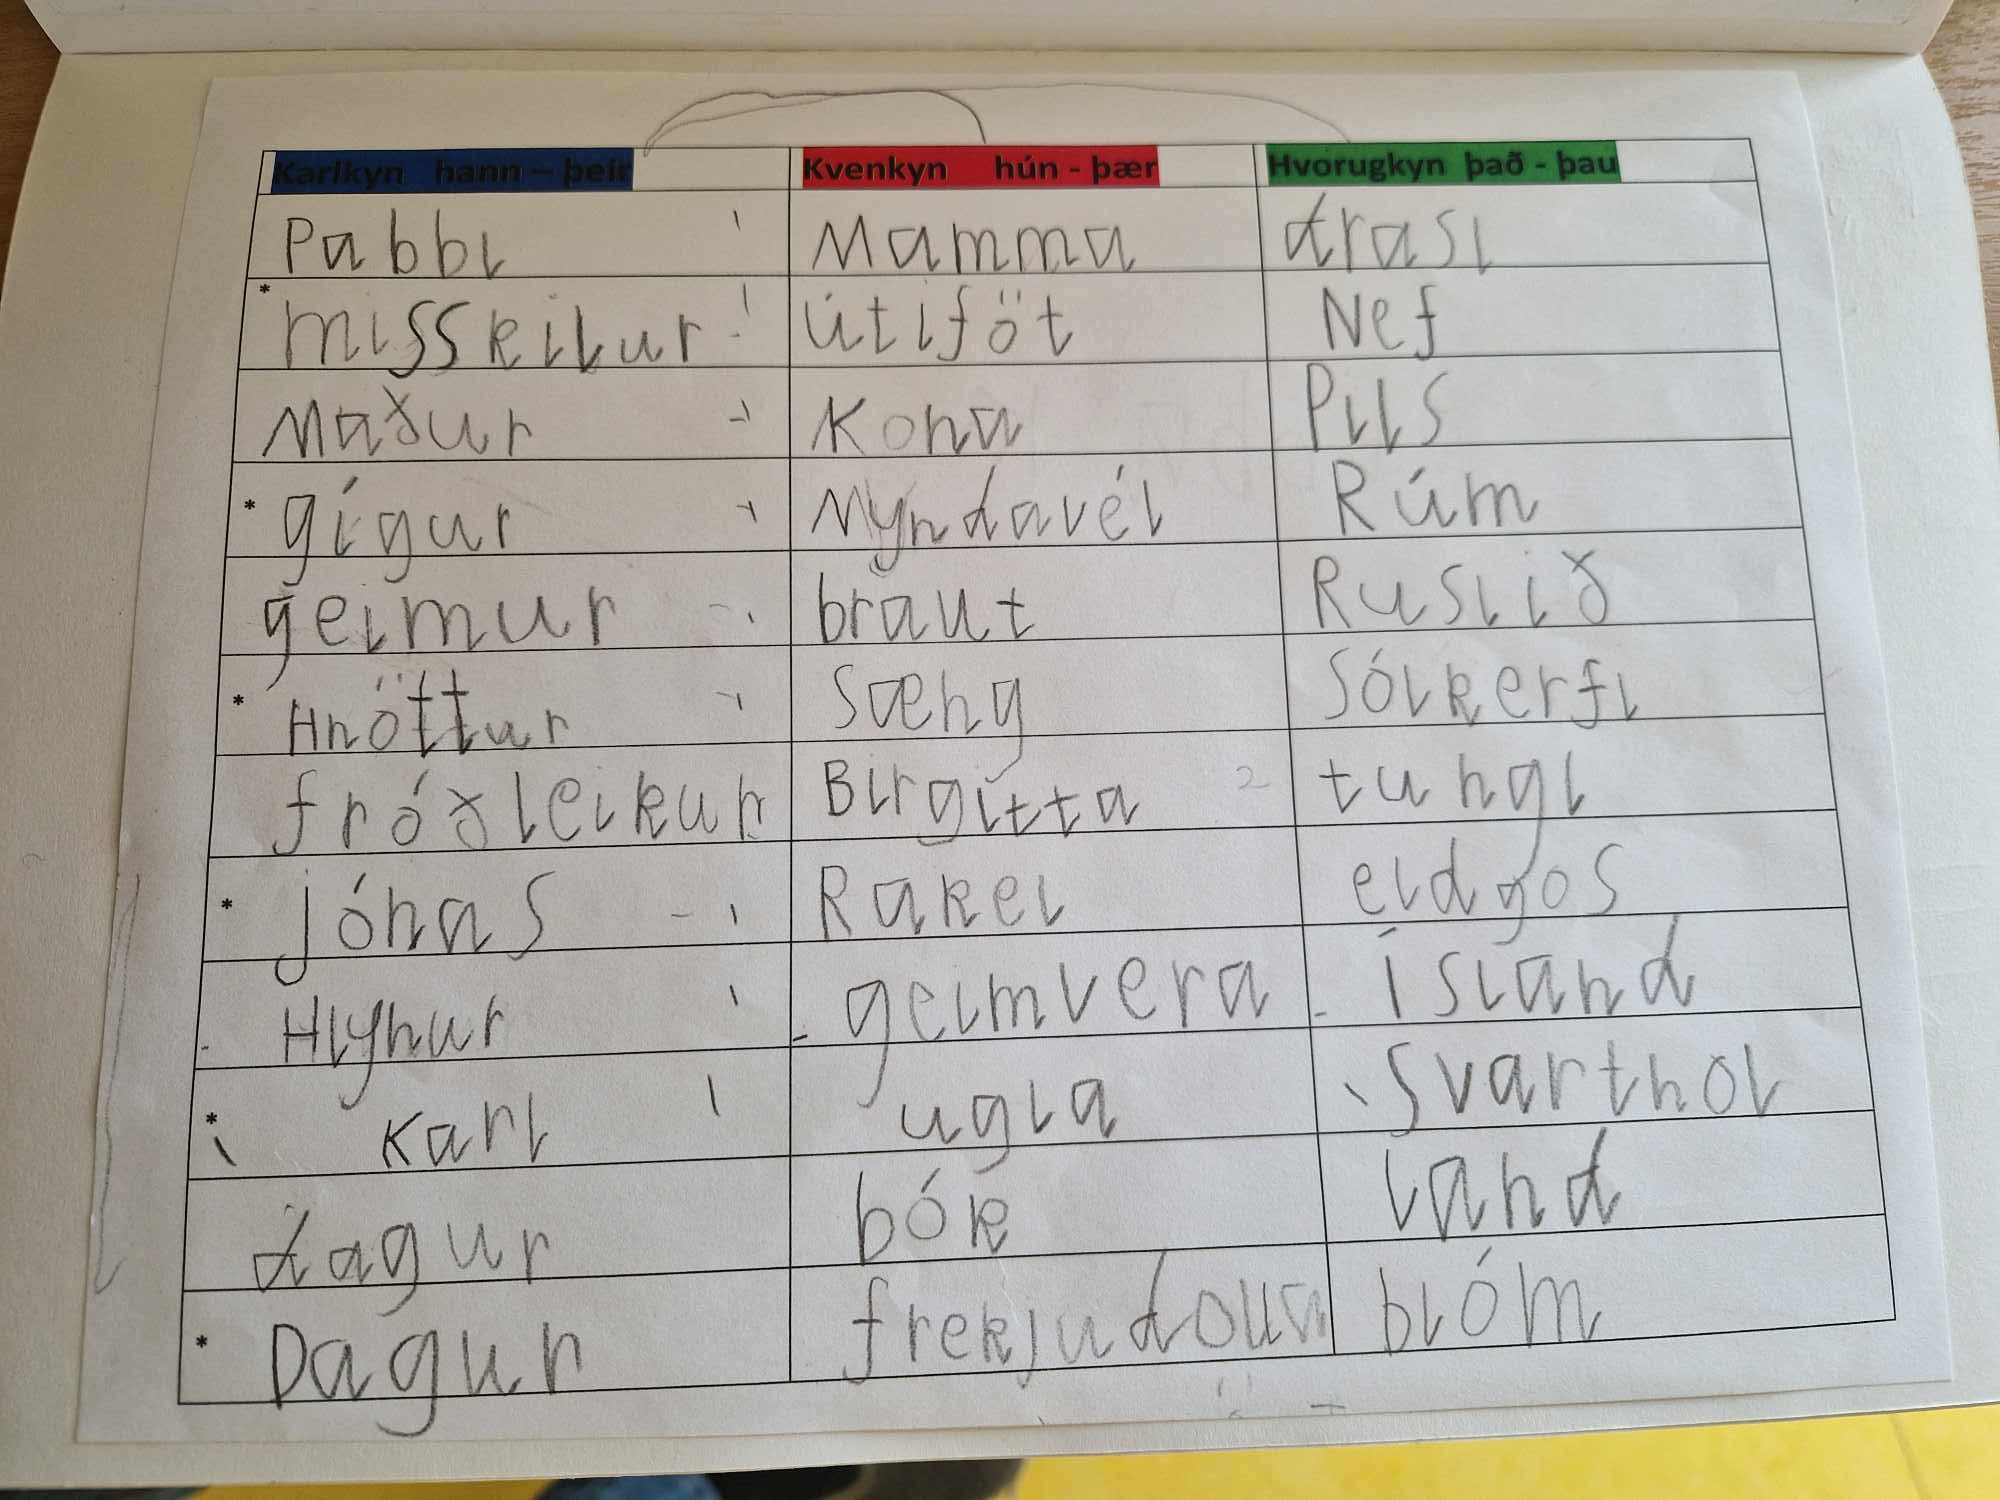 Karlkyn hann – þeir Kvenkyn hún - þær Hvorugkyn það - þau
Pabbi Mamma drasl
* misskilur útiföt Nef
Maður Kona Pils
* gígur Myndavél Rúm
geimur braut Ruslið
* Hnöttur Sæng Sólkerfi
fróðleikur Birgitta tungl
* jónas Rakel eldgos
Hlynur geimvera ísland
* Karl ugla svarthol
dagur bók land
* Dagur frekjudolla blóm